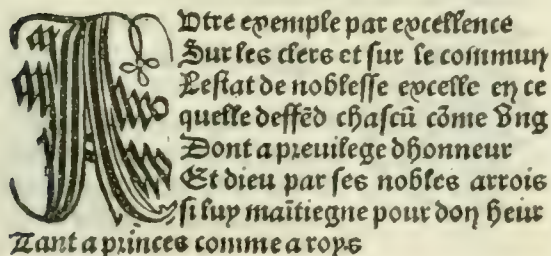 AVtre exemple par excellence
Sur les clers et sur le commun
Lestat de noblesse excelle en ce
quelle deffẽd chascũ cõme vng
Dont a preuilege dhonneur
Et dieu par ses nobles arrois
si luy maĩtiegne pour don heur
Tant a princes comme a roys